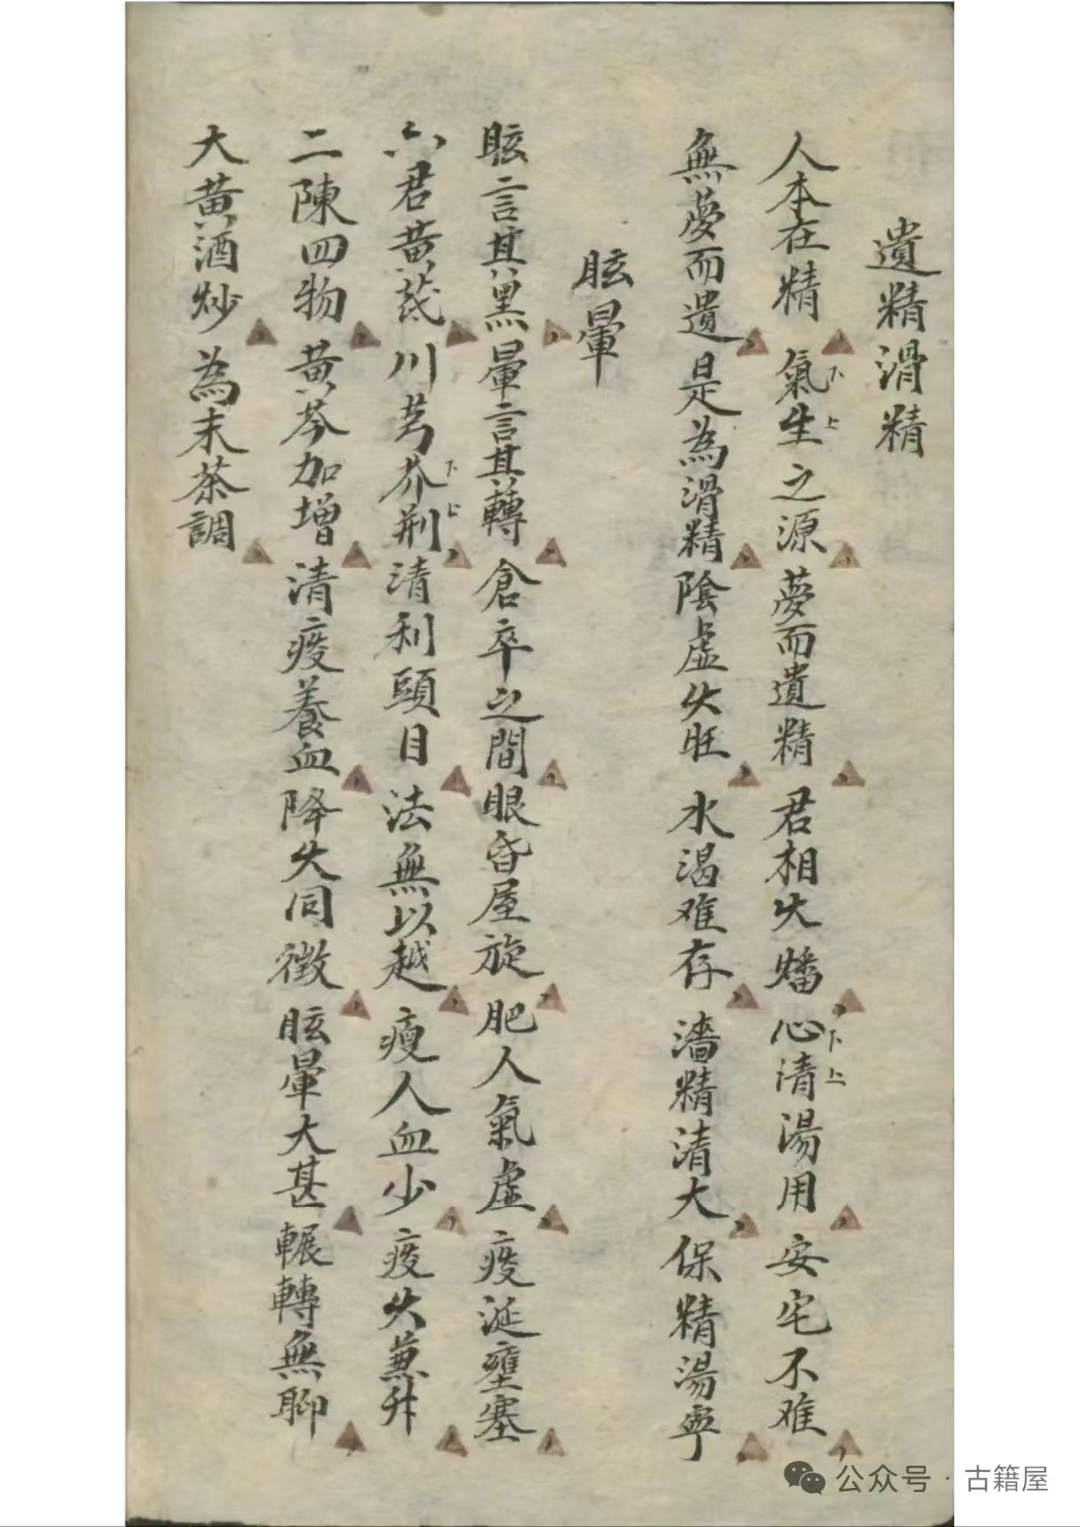 遺精滑精
人本在精 氣下生上之源 夢而遺精 君相火燔 心下清上湯用 安宅不难
無夢而遺 是為滑精 陰虛火旺 水渴难存 濇精清大 保精湯寧
眩暈
眩言其黑 暈言其轉 倉卒之間 眼昏屋旋 肥人氣虛 痰涎壅塞
六君黄芪 川芎芥下荆上 清利頭目 法無以越 瘦人血少 痰火兼升
二陳四物 黄芩加增 清痰養血 降火同徵 眩暈大甚 輾轉無聊
大黄酒炒 為末茶調
公众号·古籍屋